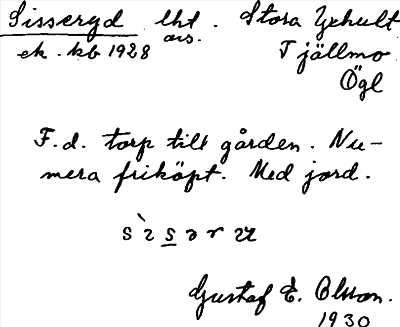 Sisseryd lht. Stora Yxhult
ek. kb 1928 avs. Tjällmo
Ögl
F.d. torp till gården. Nu-
mera friköpt. Med jord.
Gustaf E. Olsson.
1930